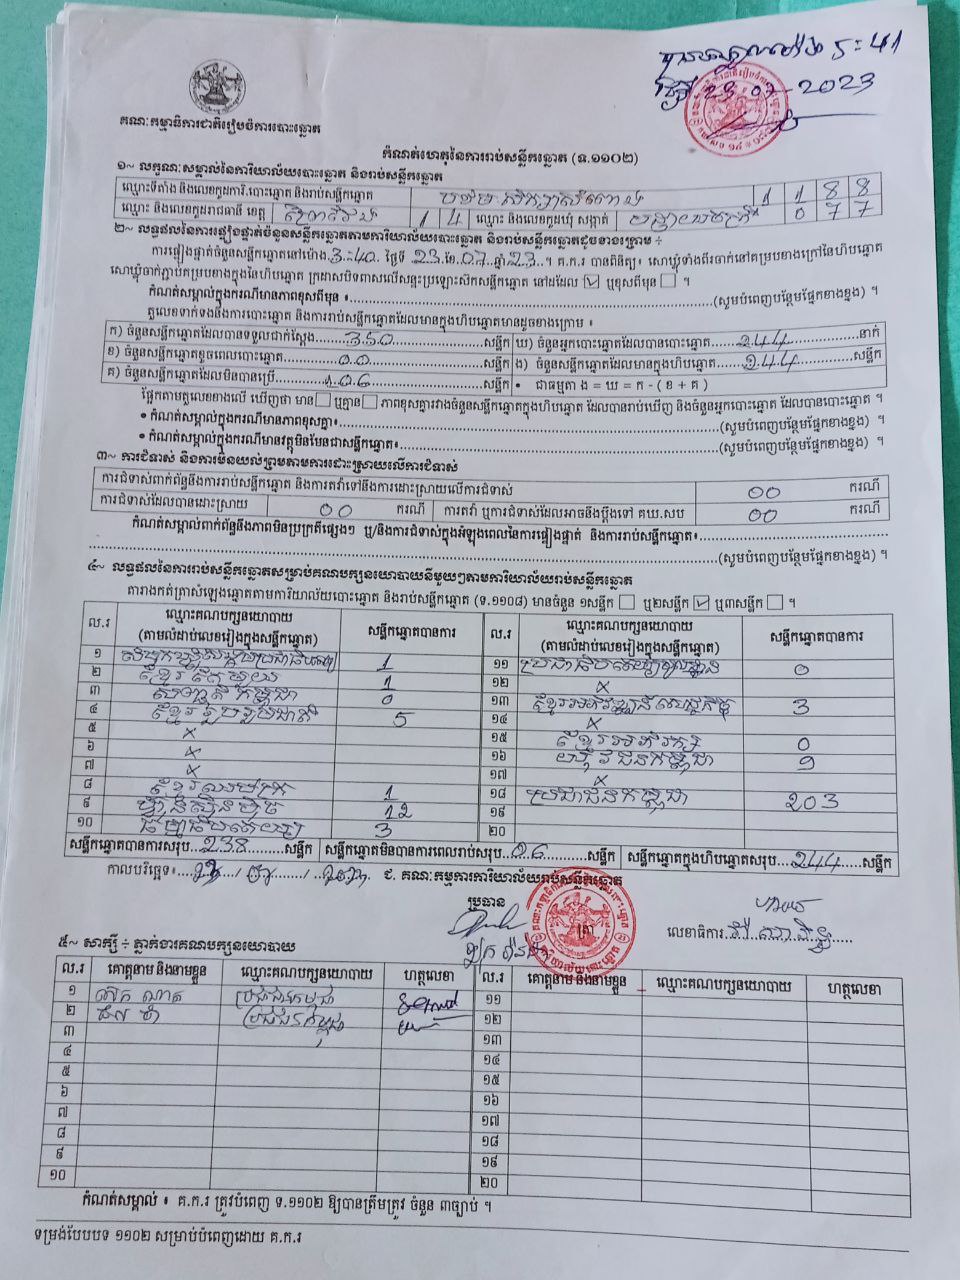 ម៉ោង ៥:41
ថ្ងៃ 23.07.2023
គណៈកម្មាធិការជាតិរៀបចំការបោះឆ្នោត
កំណត់ហេតុនៃការរាប់សន្លឹកឆ្នោត (ទ.១១០២)
១~ លក្ខណៈសម្គាល់នៃការិយាល័យបោះឆ្នោត និងរាប់សន្លឹកឆ្នោត
ឈ្មោះទីតាំង និងលេខកូដការិ.បោះឆ្នោត និងរាប់សន្លឹកឆ្នោត 1 1 8 8
ឈ្មោះ និងលេខកូដរាជធានី ខេត្ត ព្រៃវែង 1 4 ឈ្មោះ និងលេខកូដឃុំ សង្កាត់ 0 7 7
២~ លទ្ធផលនៃការផ្ទៀងផ្ទាត់ចំនួនសន្លឹកឆ្នោតតាមការិយាល័យបោះឆ្នោត និងរាប់សន្លឹកឆ្នោតដូចខាងក្រោម ÷
ការផ្ទៀងផ្ទាត់ចំនួនសន្លឹកឆ្នោតនៅម៉ោង 3:40 ថ្ងៃទី 23 ខែ 07 ឆ្នាំ 23 ។ គ.ក.រ បានពិនិត្យ៖ សោឃ្លុំទាំងពីរចាក់នៅគម្របខាងក្រៅនៃហិបឆ្នោត
សោឃ្លុំចាក់ភ្ជាប់គម្របខាងក្នុងនៃហិបឆ្នោត ក្រដាសបិទពាសលើសន្ទះប្រឡោះសិកសន្លឹកឆ្នោត នៅដដែល ✓ ឬខុសពីមុន ។
កំណត់សម្គាល់ក្នុងករណីមានភាពខុសពីមុន ៖ (សូមបំពេញបន្ថែមផ្នែកខាងខ្នង) ។
តួលេខទាក់ទងនឹងការបោះឆ្នោត និងការរាប់សន្លឹកឆ្នោតដែលមានក្នុងហិបឆ្នោតមានដូចខាងក្រោម ៖
ក) ចំនួនសន្លឹកឆ្នោតដែលបានទទួលជាក់ស្តែង 350 សន្លឹក ឃ) ចំនួនអ្នកបោះឆ្នោតដែលបានបោះឆ្នោត 244 នាក់
ខ) ចំនួនសន្លឹកឆ្នោតខូចពេលបោះឆ្នោត 00 សន្លឹក ង) ចំនួនសន្លឹកឆ្នោតដែលមានក្នុងហិបឆ្នោត 244 សន្លឹក
គ) ចំនួនសន្លឹកឆ្នោតដែលមិនបានប្រើ 106 សន្លឹក • ជាធម្មតា ង = ឃ = ក - ( ខ + គ )
ផ្អែកតាមតួលេខខាងលើ ឃើញថា មាន ឬគ្មាន ភាពខុសគ្នារវាងចំនួនសន្លឹកឆ្នោតក្នុងហិបឆ្នោត ដែលបានរាប់ឃើញ និងចំនួនអ្នកបោះឆ្នោត ដែលបានបោះឆ្នោត ។
• កំណត់សម្គាល់ក្នុងករណីមានភាពខុសគ្នា៖ (សូមបំពេញបន្ថែមផ្នែកខាងខ្នង) ។
• កំណត់សម្គាល់ក្នុងករណីមានវត្ថុមិនមែនជាសន្លឹកឆ្នោត៖ (សូមបំពេញបន្ថែមផ្នែកខាងខ្នង) ។
៣~ ការជំទាស់ និងការមិនយល់ព្រមតាមការដោះស្រាយលើការជំទាស់
ការជំទាស់ពាក់ព័ន្ធនឹងការរាប់សន្លឹកឆ្នោត និងការតវ៉ាទៅនឹងការដោះស្រាយលើការជំទាស់ 00 ករណី
ការជំទាស់ដែលបានដោះស្រាយ 00 ករណី ការតវ៉ា ឬការជំទាស់ដែលអាចនឹងប្តឹងទៅ គឃ.សប 00 ករណី
កំណត់សម្គាល់ពាក់ព័ន្ធនឹងភាពមិនប្រក្រតីផ្សេងៗ ឬ/និងការជំទាស់ក្នុងអំឡុងពេលនៃការផ្ទៀងផ្ទាត់ និងការរាប់សន្លឹកឆ្នោត៖
(សូមបំពេញបន្ថែមផ្នែកខាងខ្នង) ។
៤~ លទ្ធផលនៃការរាប់សន្លឹកឆ្នោតសម្រាប់គណបក្សនយោបាយនីមួយៗតាមការិយាល័យរាប់សន្លឹកឆ្នោត
តារាងកត់ត្រាសំឡេងឆ្នោតតាមការិយាល័យបោះឆ្នោត និងរាប់សន្លឹកឆ្នោត (ទ.១១០៨) មានចំនួន ១សន្លឹក ឬ២សន្លឹក ✓ ឬ៣សន្លឹក ។
ល.រ ឈ្មោះគណបក្សនយោបាយ (តាមលំដាប់លេខរៀងក្នុងសន្លឹកឆ្នោត) សន្លឹកឆ្នោតបានការ ល.រ ឈ្មោះគណបក្សនយោបាយ (តាមលំដាប់លេខរៀងក្នុងសន្លឹកឆ្នោត) សន្លឹកឆ្នោតបានការ
១ 1 ១១ 0
២ ខ្មែរតែមួយ 1 ១២ x
៣ សញ្ជាតិកម្ពុជា 0 ១៣ ខ្មែរអភិវឌ្ឍន៍សេដ្ឋកិច្ច 3
៤ ខ្មែររួបរួមជាតិ 5 ១៤ x
៥ x ១៥ ខ្មែរអភិរក្ស 0
៦ x ១៦ យុវជនកម្ពុជា 9
៧ x ១៧ x
៨ 1 ១៨ ប្រជាជនកម្ពុជា 203
៩ ហ៊្វុនស៊ិនប៉ិច 12 ១៩
១០ ធម្មាធិបតេយ្យ 3 ២០
សន្លឹកឆ្នោតបានការសរុប 238 សន្លឹក សន្លឹកឆ្នោតមិនបានការពេលរាប់សរុប 06 សន្លឹក សន្លឹកឆ្នោតក្នុងហិបឆ្នោតសរុប 244 សន្លឹក
កាលបរិច្ឆេទ៖ ២៣ / ០៧ / ២០២៣ ជ. គណៈកម្មការការិយាល័យរាប់សន្លឹកឆ្នោត
ប្រធាន
ត្រា លេខាធិការ
៥~ សាក្សី ÷ ភ្នាក់ងារគណបក្សនយោបាយ
ល.រ គោត្តនាម និងនាមខ្លួន ឈ្មោះគណបក្សនយោបាយ ហត្ថលេខា ល.រ គោត្តនាម និងនាមខ្លួន ឈ្មោះគណបក្សនយោបាយ ហត្ថលេខា
១ ប្រជាជនកម្ពុជា ១១
២ ប្រជាជនកម្ពុជា ១២
៣ ១៣
៤ ១៤
៥ ១៥
៦ ១៦
៧ ១៧
៨ ១៨
៩ ១៩
១០ ២០
កំណត់សម្គាល់ ៖ គ.ក.រ ត្រូវបំពេញ ទ.១១០២ ឱ្យបានត្រឹមត្រូវ ចំនួន ៣ច្បាប់ ។
ទម្រង់បែបបទ ១១០២ សម្រាប់បំពេញដោយ គ.ក.រ